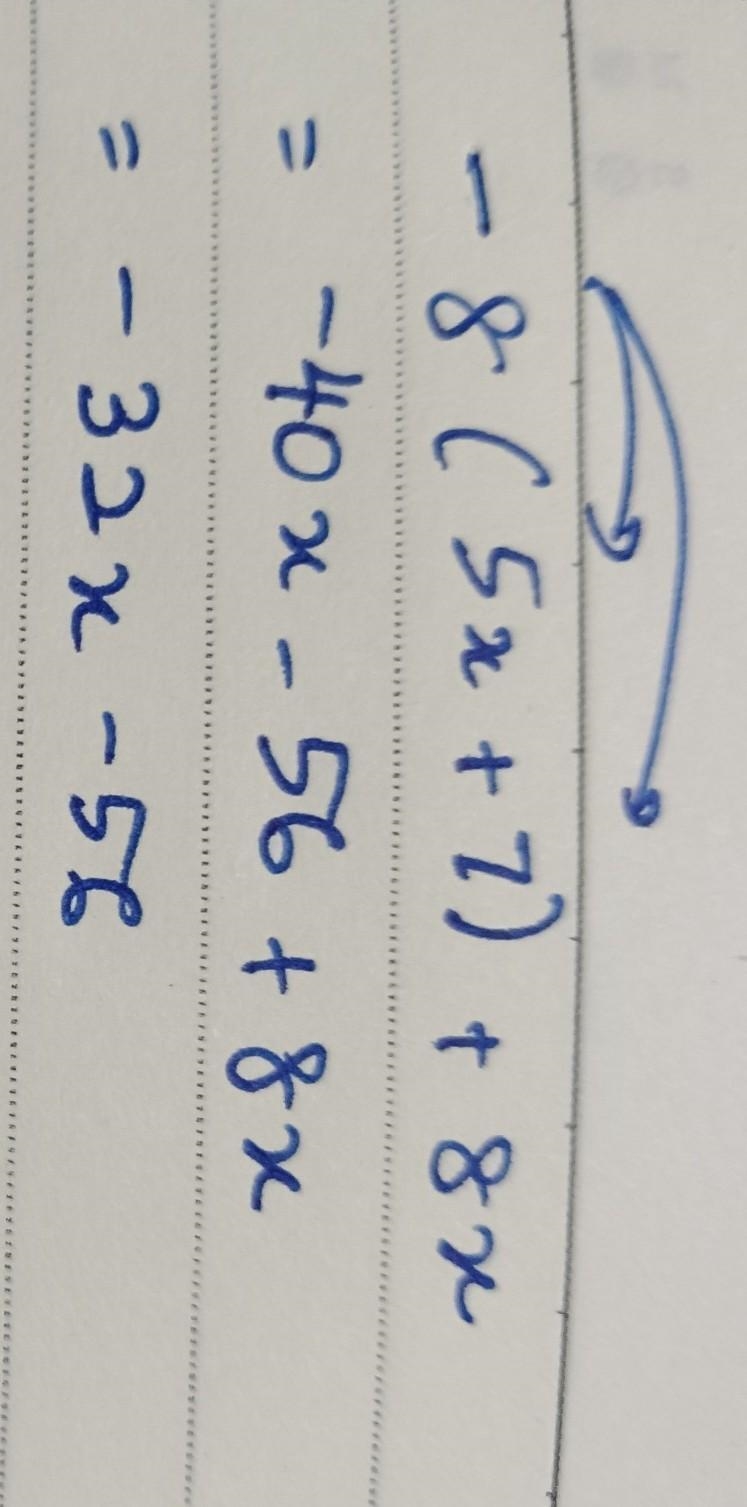 - 8 ( 5x + 7 ) + 8x
= - 40x - 56 + 8x
= - 32x - 56